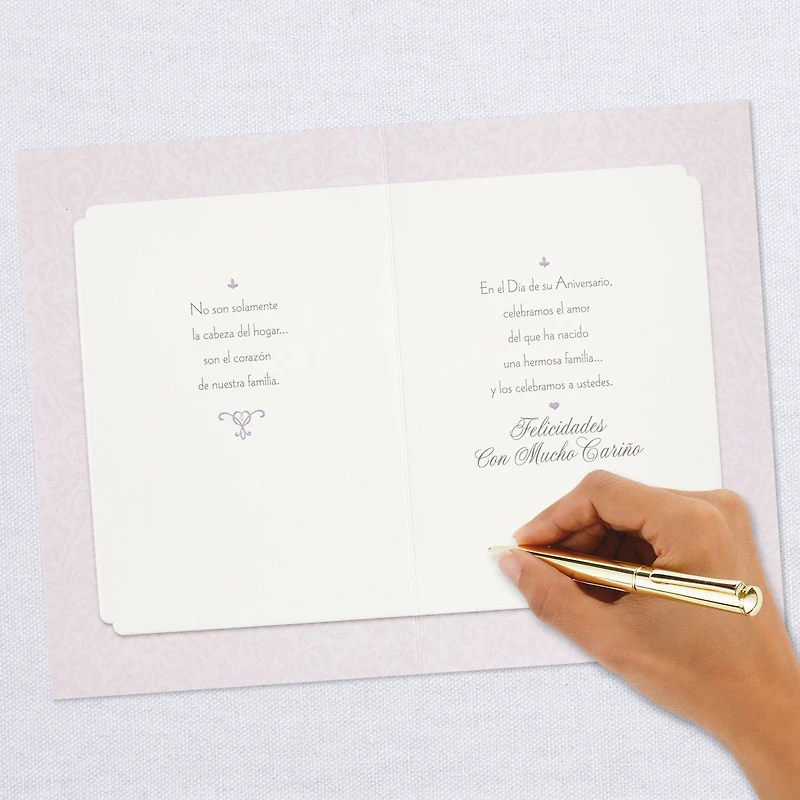 No son solamente
la cabeza del hogar...
son el corazón
de nuestra familia.
En el Día de su Aniversario,
celebramos el amor
del que ha nacido
una hermosa familia...
y los celebramos a ustedes.
Felicidades
Con Mucho Cariño